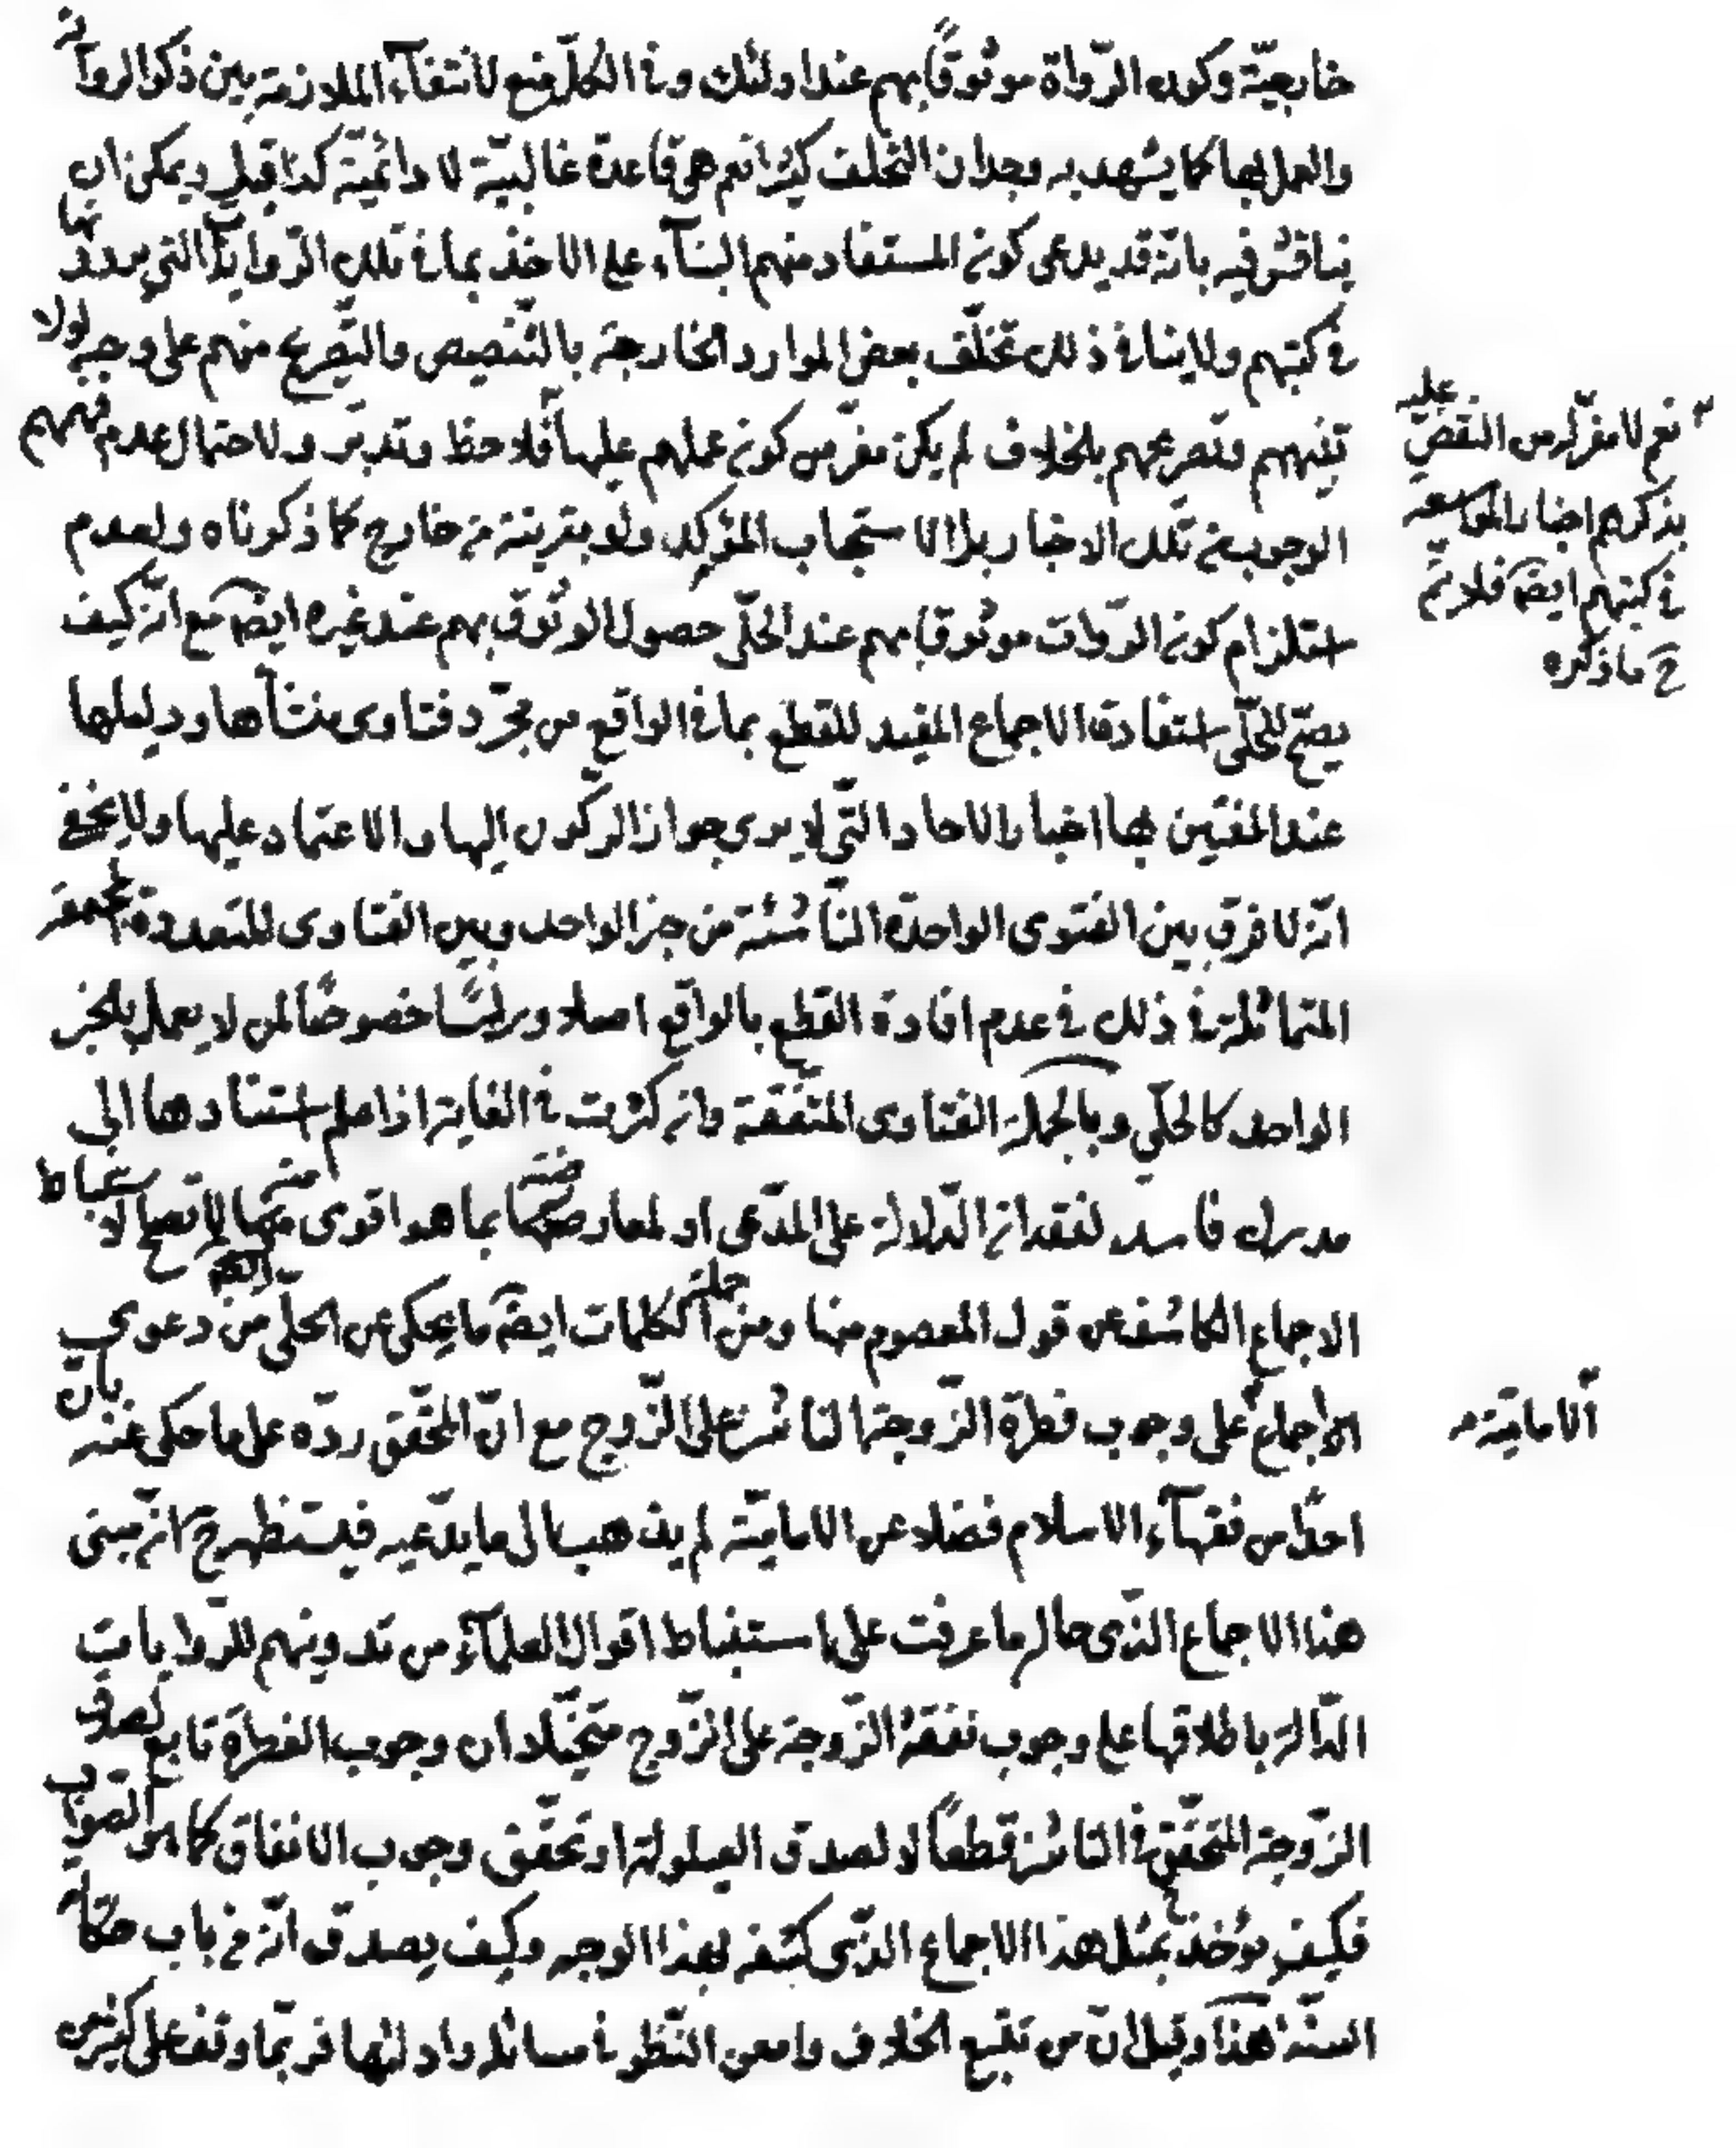 خارجيّة وكون الرّواة موثوقًا بهم عند اولئك وفى الكلّ منع لانتفآء الملازمة بين ذكر الرواية
والعمل بها كما يشهد به وجدان التخلف كثيرا نعم هى قاعدة غالبيّة لا دائميّة كذا قيل ويمكن ان
يناقش فيه بانّه قد يدعى كون المستفاد منهم البنآء على الاخذ بما فى تلك الرّوايات التى بها
فى كتبهم ولا ينافى ذلك تخلّف بعض الموارد الخارجة بالتّنصيص والتصريح منهم على وجه لولا
تنبيههم وتصريحهم بالخلاف لم يكن مفر من كون عملهم عليها فلاحظ وتدبّر ولاحتمال عدم فهمهم
الوجوب من تلك الاخبار بل الاستحباب المؤكد ولو بقرينة من خارج كما ذكرناه ولعدم
استلزام كون الرّوات موثوقا بهم عند الحلّى حصول الوثوق بهم عند غيره ايضا مع انّه كيف
يصحّ للحلّى استفادة الاجماع المفيد للقطع بما فى الواقع من مجرّد فتاوى منشأها ودليلها
عند المفتين بها اخبار الاحاد التّى لا يرى جواز الركون اليها والاعتماد عليها ولا يخفى
انّه لا فرق بين الفتوى الواحدة النّاشئة من خبر الواحد وبين الفتاوى المتعددة المجتمعة
المتماثلة فى ذلك فى عدم افادة القطع بالواقع اصلا ورأسًا خصوصًا لمن لا يعمل بالخبر
الواحد كالحلّي وبالجملة الفتاوى المتفقة وان كثرت فى الغاية اذا علم استنادها الى
مدرك فاسد لفقدان الدّلالة على المدّعى او لمعارضته بما هو اقوى منه لا تصح لاستنباط
الاجماع الكاشف عن قول المعصوم منها ومن جملة الكلمات ايضا ما يحكى عن الحلّى من دعوى
الاجماع على وجوب فطرة الزّوجة الناشز على الزّوج مع انّ المحقّق ردّه على ما حكى عنه بانّ
احدًا من فقهآء الاسلام فضلا عن الاماميّة لم يذهب الى ما يدّعيه فيستظهر ح انّ مبنى
هذا الاجماع الذّى حاله ما عرفت على استنباط اقوال العلمآء من تدوينهم للرّوايات
الدّالة باطلاقها على وجوب نفقة الزّوجة على الزّوج متخيّلا ان وجوب الفطرة تابع لصدق
الزّوجة المتحقّق فى الناشز قطعاً لا لصدق العيلولة او تحقّق وجوب الانفاق كما هو الصّواب
فكيف يؤخذ بمثل هذا الاجماع الذّى كشفه بهذا الوجه وكيف يصدق انّه من باب حكاية
السنّة هذا وقيل انّ من تتبع الخلاف وامعن النّظر فى مسائله وادلتها فربّما وقف على كثير من
نعم لا مفر له من النقض عليه
بذكرهم اخبار المواسعة
فى كتبهم ايضا فلا يتمّ
ح ما ذكره
الاماميّة